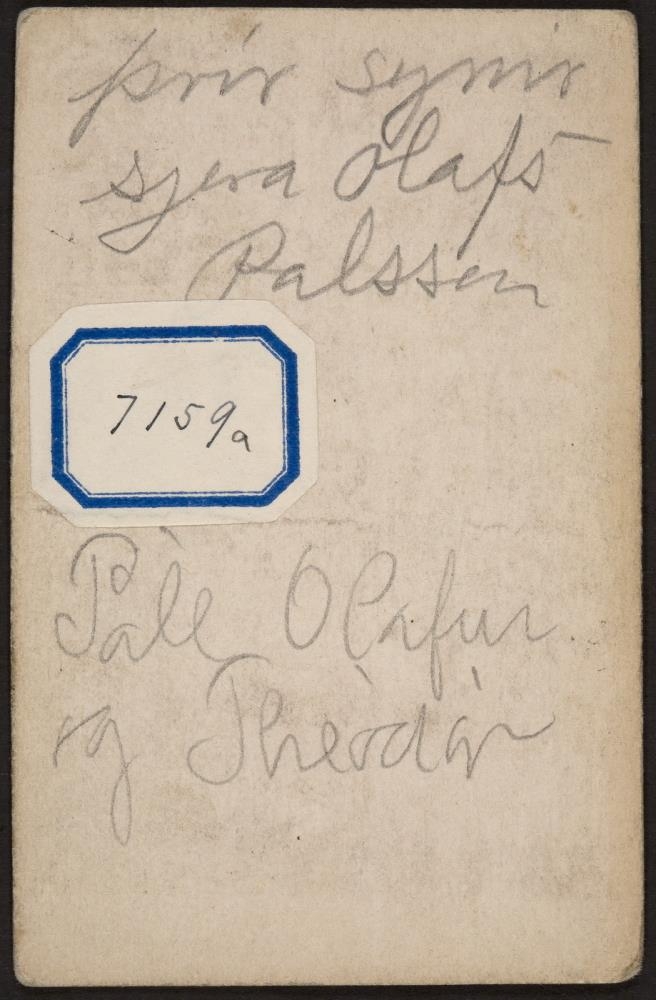 þrír synir
sjera Olafs
Palssen
7159a
Páll Olafur
og Theódór